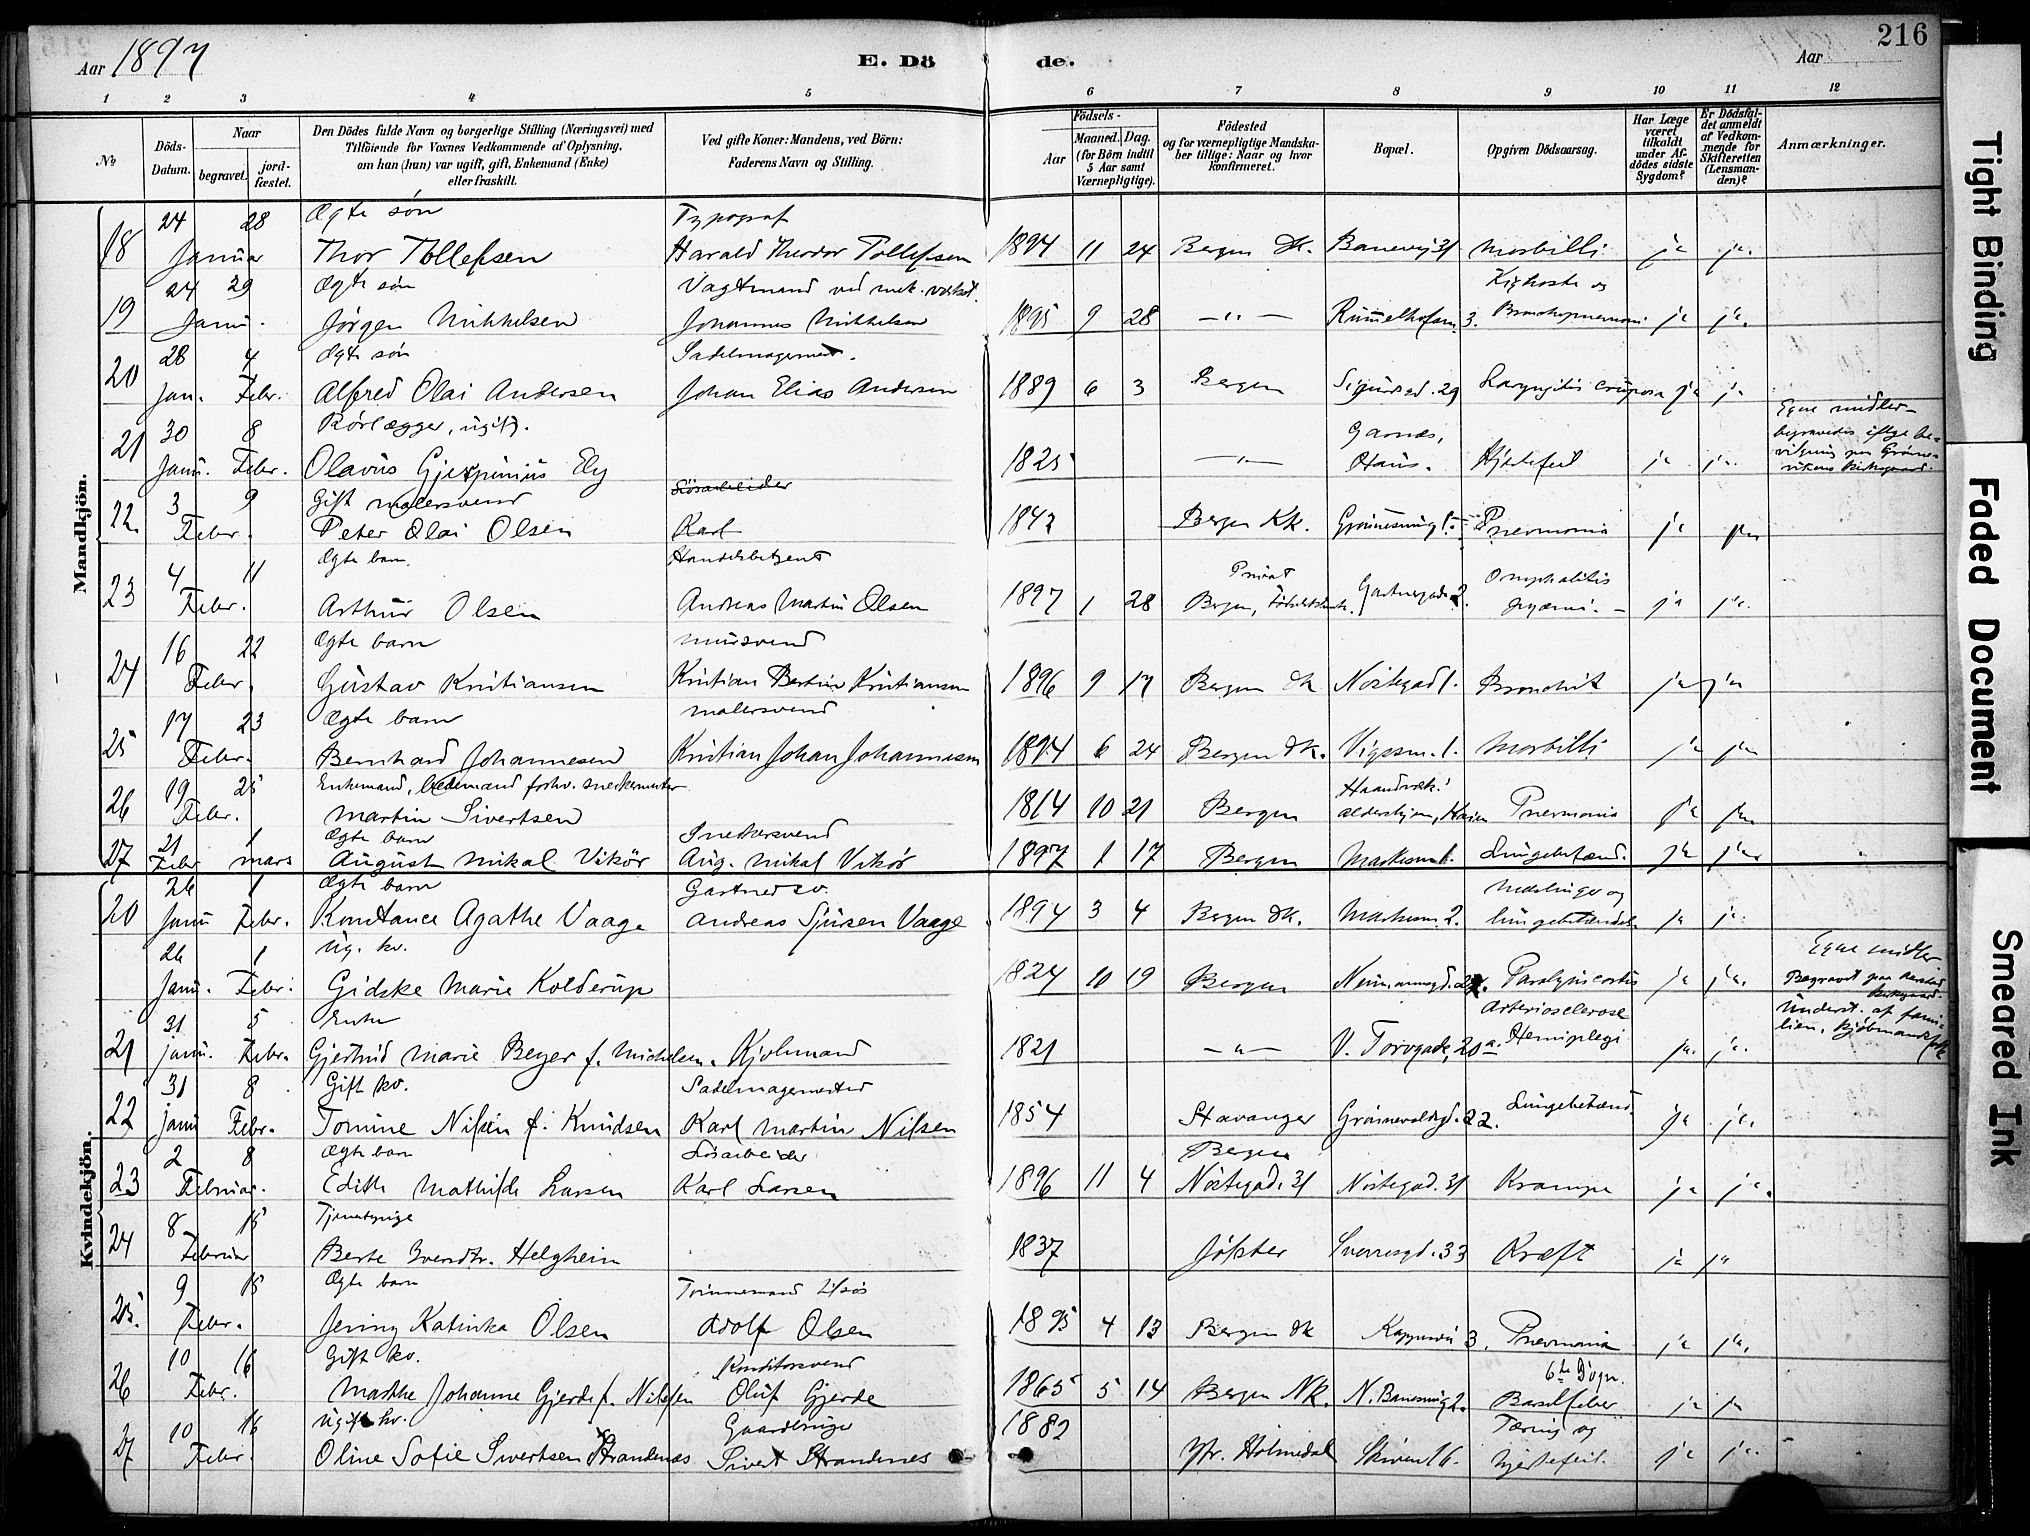 216
Aar 1897
E. Dö
de.
Aar
1 2 3 4 5 6 7 8 9 10 11 12
No
Döds-Datum.
Naar
begravet.
jord-fæstet.
Den Dödes fulde Navn og borgerlige Stilling (Næringsvei) med
Tilföiende for Voxnes Vedkommende af Oplysning,
om han (hun) var ugift, gift, Enkemand (Enke)
eller fraskilt.
Ved gifte Koner: Mandens, ved Börn:
Faderens Navn og Stilling.
Födsels-
Aar
Maaned. Dag.
(for Börn indtil
5 Aar samt
Værnepligtige).
Födested
og for værnepligtige Mandska-
ber tillige: Naar og hvor
konfirmeret.
Bopæl.
Opgiven Dödsaarsag.
Har Læge
været
tilkaldt
under Af-
dödes sidste
Sygdom?
Er Dödsfal-
det anmeldt
af Vedkom-
mende for
Skifteretten
(Lensman-
den)?
Anmærkninger.
Mandkjön.
24 28 Ægte søn Typograf
18 Januar Thor Tollefsen Harald Theodor Tollefsen 1894 11 24 Bergen Dk. Banevei 31 Morbilli ja ja.
24 29 Ægte søn Vagtmand ved mek. Kighoste og
19 Janu. Jørgen Mikkelsen Johannes Mikkelsen 1895 9 28 —"— 3. Bronchopneumoni ja ja.
28 4 Ægte søn Sadelmagermest.
20 Jan. Febr. Alfred Olai Andersen Johan Elias Andersen 1889 6 3 Bergen Sigurdsgd. 29 Laryngitis crouposa ja ja
30 8 Rørlægger, ugift. Garnæs, Egne midler
21 Janu. Febr. Olavus Ely 1825 —"— Haus. Hjertefeil ja ja.
3 9 Gift malersvend Løsarbeider
22 Febr. Peter Olai Olsen Karl 1843 Bergen Kk. Pneumonia ja ja
4 11 Ægte barn. Handelsbetjent Privat Omphalitis
23 Febr. Arthur Olsen Andreas Martin Olsen 1897 1 28 Bergen, Gartnergade 2. pyæmi. ja ja.
16 22 Ægte barn Mursvend
24 Febr. Gustav Kristiansen Kristian Bertin Kristiansen 1896 9 17 Bergen Dk Nøstegad 1. Bronchit ja ja
17 23 Ægte barn Malersvend
25 Febr. Bernhard Johannesen Kristian Johan Johannesen 1894 6 24 Bergen Dk. Morbilli ja ja
19 25 Enkemand, bedemand forhv. snedkermester Haandværk.
26 Febr. Martin Sivertsen 1814 10 21 Bergen aldershjem, Pneumonia ja ja
21 1 Ægte barn Snedkersvend
27 Febr mars August Mikal Vikør Aug. Mikal Vikør 1897 1 17 Bergen Lungebetænd. ja ja
Kvindekjön.
26 1 Ægte barn Gartnersv. Meslinger og
20 Janu Febr. Konstance Agathe Vaage Andreas Sjursen Vaage 1894 3 4 Bergen Dk. lungebetændels. ja ja
26 1 Ug. kv. Egne midler.
Janu. Febr. Gidske Marie Kolderup 1824 10 19 Bergen ja ja. Begravet paa
31 5 Enke Arteriosclerose Underst. af fami-
21 janu. Febr. Gjertrud Marie Beyer f. Michelsen. Kjøbmand 1821 —"— V. Torvgade, 20a Hemiplegi ja. ja. lien,
31 8 Gift kv. Sadelmagermester
22 janu Febr. Tomine Nilsen f. Knudsen Karl Martin Nilsen 1854 Stavanger 22. Lungebetænd. ja ja.
2 8 Ægte barn Løsarbeider Bergen
23 Februar. Edith Mathilde Larsen Karl Larsen 1896 11 4 Nøstegad. 31 Nøstegad. 31 Krampe ja ja.
8 15 Tjenestepige
24 Februar Berte Helgheim 1837 Jølster Sverresgd. 33 Kræft ja ja
9 15 Ægte barn Tømmermand tilsøs
25. Febr. Jenny Katinka Olsen Adolf Olsen 1895 4 13 Bergen Dk 3. Pneumonia ja ja.
10 16 Gift kv. Konditorsvend 6te Døgn.
26 Febr. Marthe Johanne Gjerde f. Nilssen Oluf Gjerde 1865 5 14 Bergen Nk. Barselfeber ja ja
10 16 Ugift kv. Gaardbruger Tæring og
27 Febr. Oline Sofie Sivertsen Strandenæs Sivert Strandenes 1882 Ytr. Holmedal Skiven 16. hjertefeil. ja ja.
Tight Binding
Faded Document
Smeared Ink